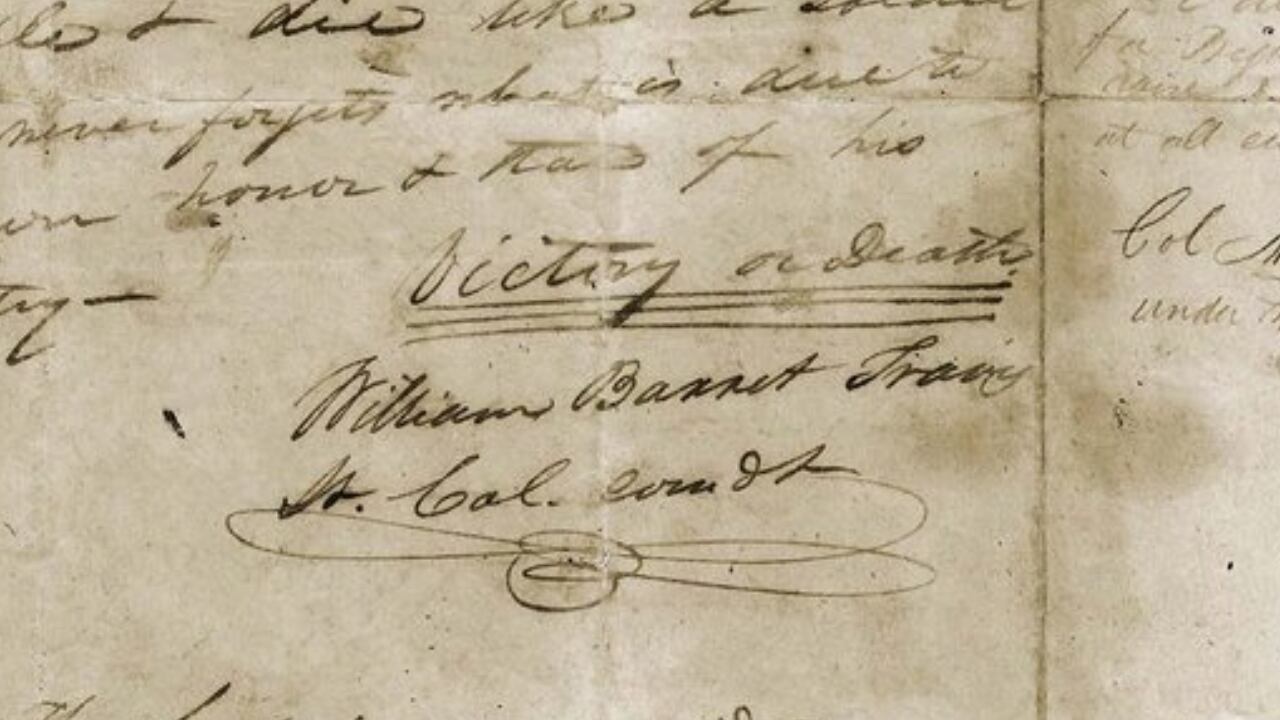 die like a
never forgets what is due to
honor & that of his
Victory or Death
William Barret Travis
Lt. Col. comdt
at all
Col
under